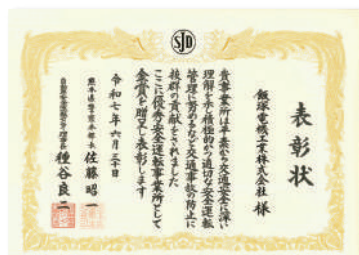 SJD
表彰状
飯塚電機工業株式会社 様
貴事業所は平素から交通安全に深い
理解を示し積極的かつ適切な安全運転
管理に努めるなど交通事故の防止に
抜群の貢献をされました
ここに優秀安全運転事業所として
金賞を贈呈し表彰します
令和七年六月三十日
熊本県警察本部長 佐藤昭一
自動車安全運転センター理事長 種谷良二